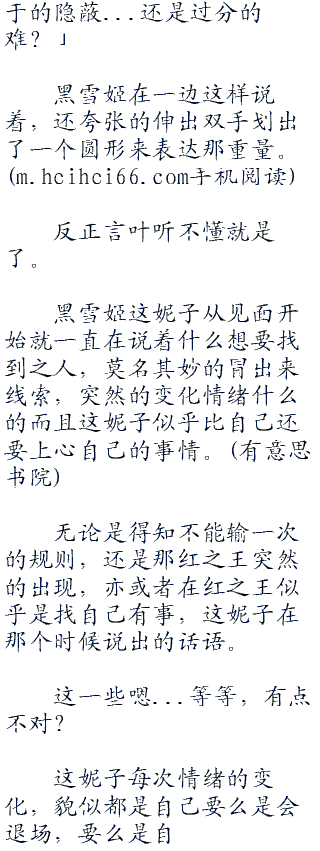 于的隐蔽...还是过分的
难？」
黑雪姬在一边这样说
着，还夸张的伸出双手划出
了一个圆形来表达那重量。
(m.hcihci66.com手机阅读)
反正言叶听不懂就是
了。
黑雪姬这妮子从见面开
始就一直在说着什么想要找
到之人，莫名其妙的冒出来
线索，突然的变化情绪什么
的而且这妮子似乎比自己还
要上心自己的事情。(有意思
书院)
无论是得知不能输一次
的规则，还是那红之王突然
的出现，亦或者在红之王似
乎是找自己有事，这妮子在
那个时候说出的话语。
这一些嗯...等等，有点
不对？
这妮子每次情绪的变
化，貌似都是自己要么是会
退场，要么是自